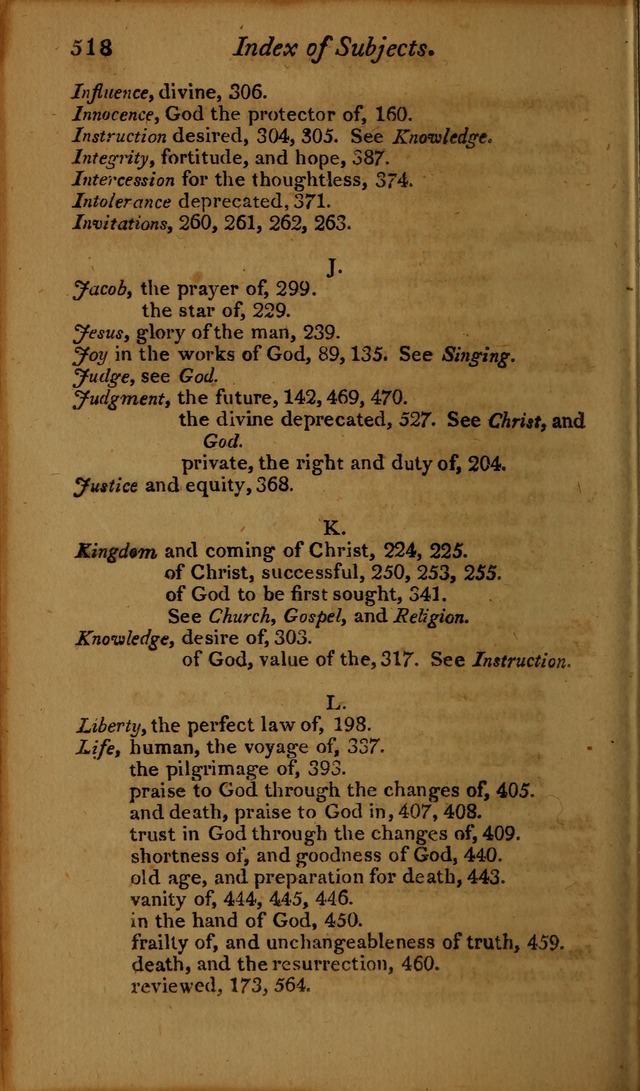 518 Index of Subjects.
Influence, divine, 306.
Innocence, God the protector of, 160.
Instruction desired, 304, 305. See Knowledge.
Integrity, fortitude, and hope, 387.
Intercession for the thoughtless, 374.
Intolerance deprecated, 371.
Invitations, 260, 261, 262, 263.
J.
Jacob, the prayer of, 299.
the star of, 229.
Jesus, glory of the man, 239.
Joy in the works of God, 89, 135. See Singing.
Judge, see God.
Judgment, the future, 142, 469, 470.
the divine deprecated, 527. See Christ, and
God.
private, the right and duty of, 204.
Justice and equity, 368.
K.
Kingdom and coming of Christ, 224, 225.
of Christ, successful, 250, 253, 255.
of God to be first sought, 341.
See Church, Gospel, and Religion.
Knowledge, desire of, 303.
of God, value of the, 317. See Instruction.
L.
Liberty, the perfect law of, 198.
Life, human, the voyage of, 337.
the pilgrimage of, 393.
praise to God through the changes of, 405.
and death, praise to God in, 407, 408.
trust in God through the changes of, 409.
shortness of, and goodness of God, 440.
old age, and preparation for death, 443.
vanity of, 444, 445, 446.
in the hand of God, 450.
frailty of, and unchangeableness of truth, 459.
death, and the resurrection, 460.
reviewed, 173, 564.